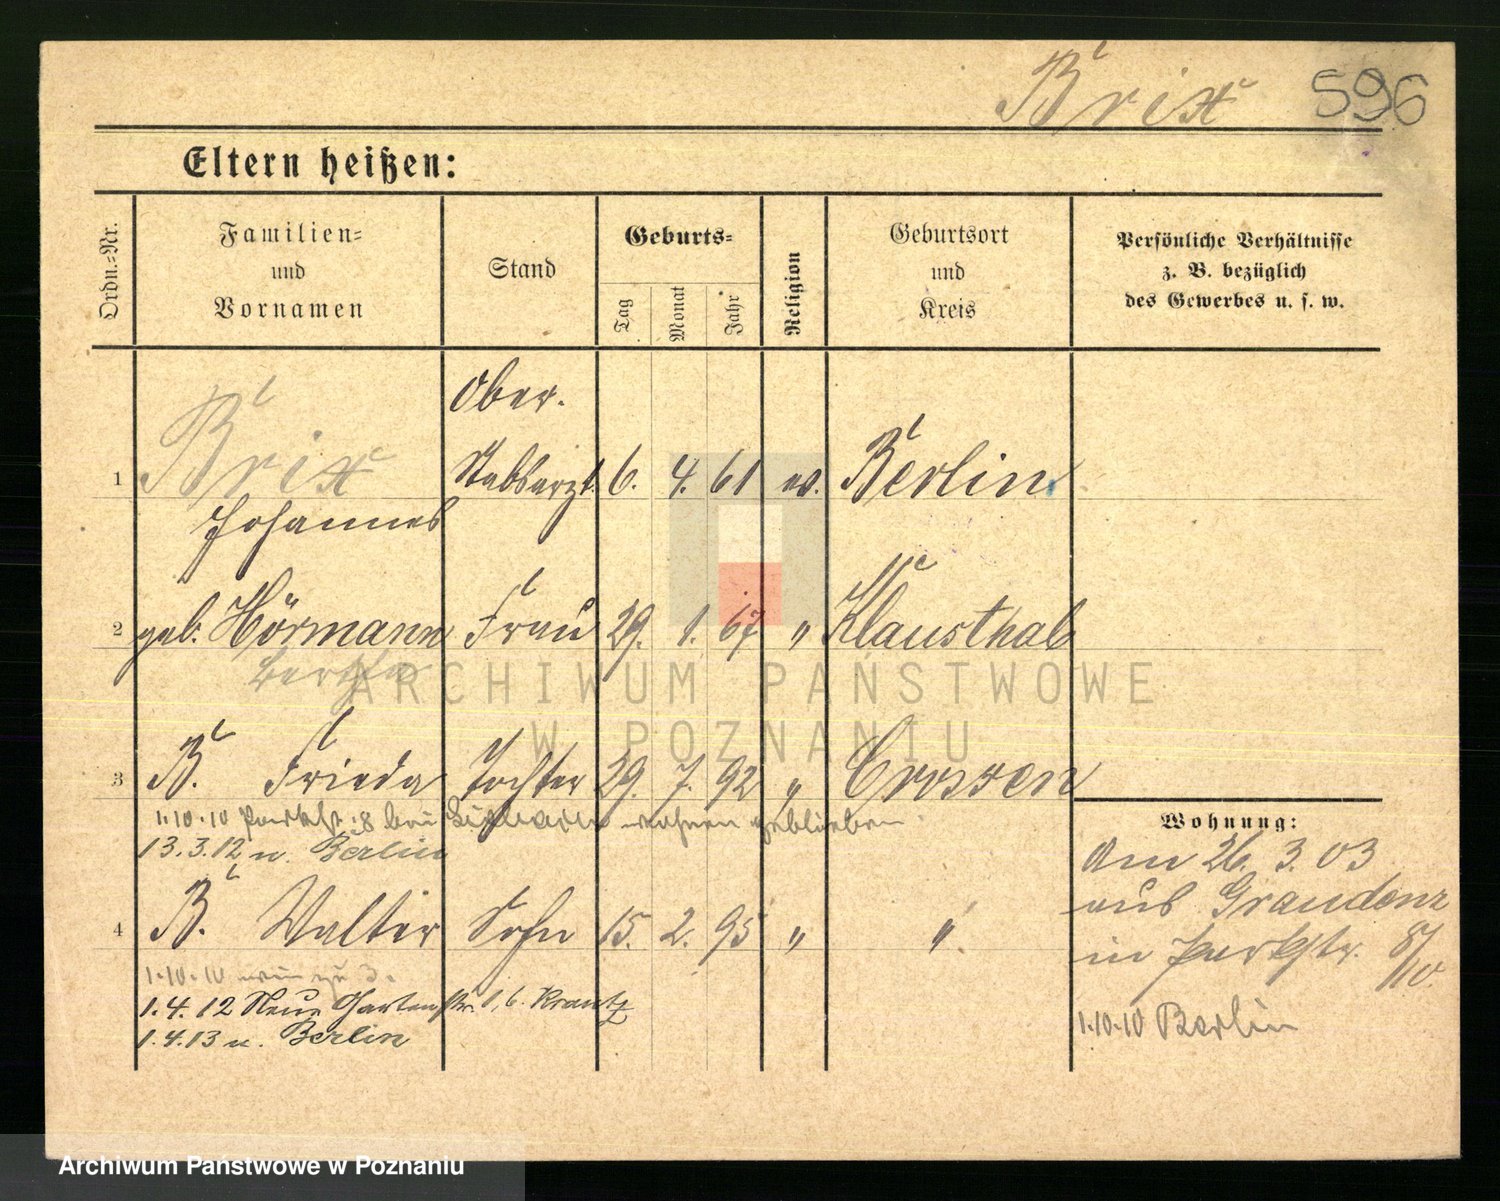 Brix 596
Eltern heißen:
Ordn.-Nr.
Familien-
und
Vornamen
Stand
Geburts-
Tag
Monat
Jahr
Religion
Geburtsort
und
Kreis
Persönliche Verhältnisse
z. B. bezüglich
des Gewerbes u. s. w.
Ober.
1 Brix Stabsarzt. 6. 4. 61 ev. Berlin
Johannes
2 geb. Hörmann Frau 29. 1. 67 " Klausthal
Bertha
ARCHIWUM PAŃSTWOWE
W POZNANIU
3 B. Frieda Tochter 29. 7. 92 " Crossen
1.10.10 Parkstr. 8 bei wohnen geblieben.
13.3.12 n. Berlin
4 B. Walter Sohn 15. 2. 95 " "
1.10.10 wie zu 3.
1.4.12 Neue Gartenstr. b. Krantz
1.4.13 n. Berlin
Wohnung:
Am 26. 3. 03
aus Graudenz
in Parkstr. 8/10.
1.10.10 Berlin
Archiwum Państwowe w Poznaniu